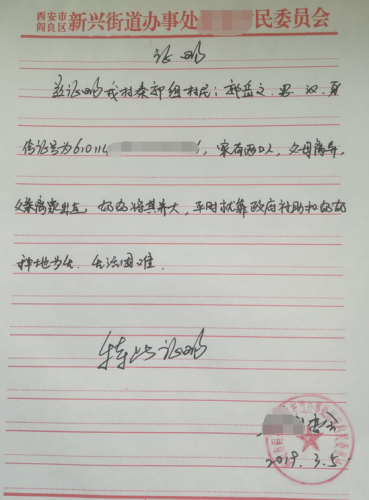 西安市
阎良区 新兴街道办事处 民委员会
证明
兹证明我村秦郭组村民:郭岳文,男,汉,身
份证号为610114 ,家有两口人,父母离异,
父亲离家出走,奶奶将其养大,平时就靠政府补助和奶奶
种地为生,生活困难.
特此证明
2019.3.5